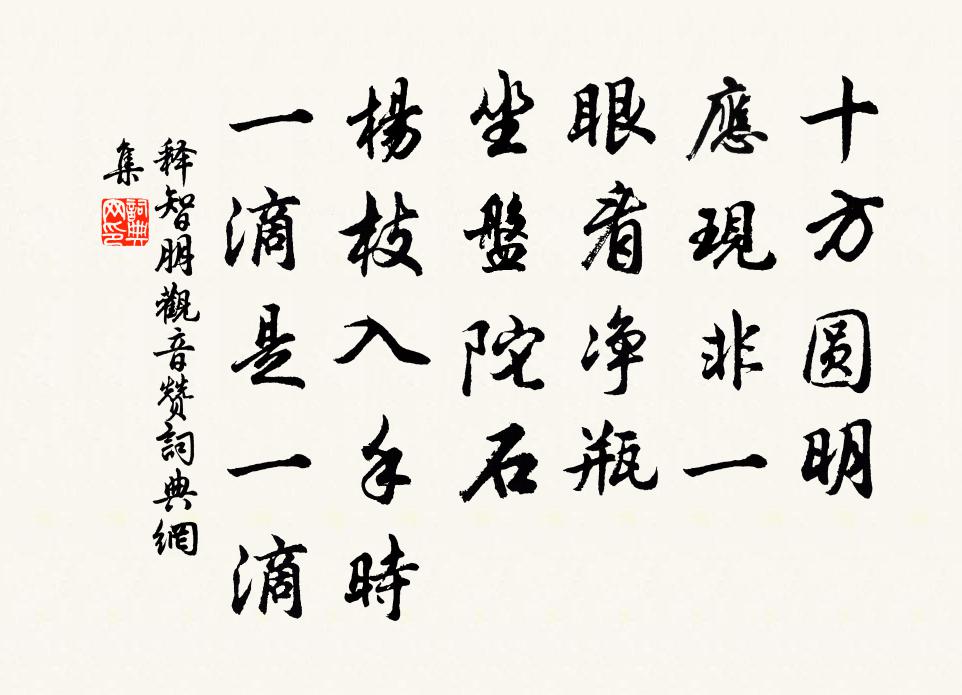 十方圆明
應現非一
眼看净瓶
坐盤陀石
楊枝入手時
一滴是一滴
释智朋觀音赞詞典網
集
詞典
网印